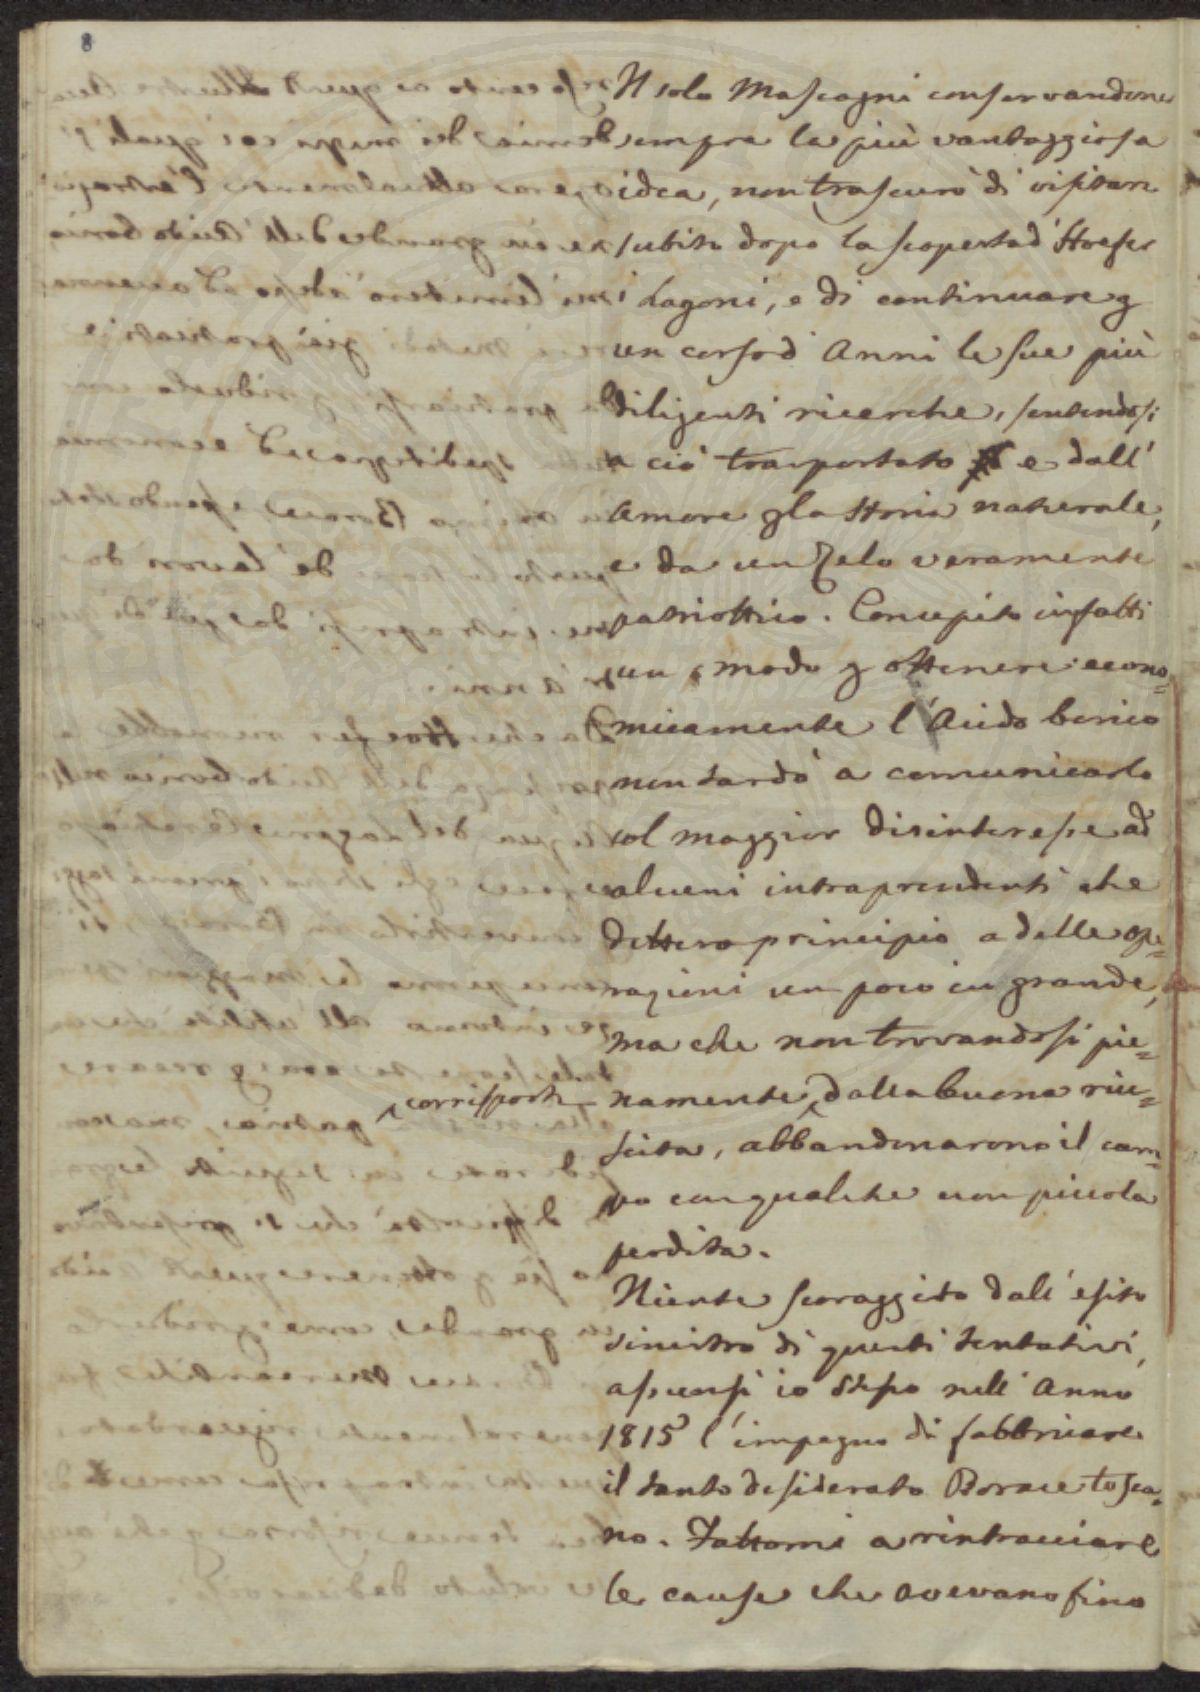 8
Il solo Mascagni conservandone
sempre la più vantaggiosa
idea, non trascurò di visitare
subito dopo la scoperta d'Hoefer
i Lagoni, e di continuare p
un corso d'Anni le sue più
diligenti ricerche, sentendosi
a ciò trasportato e dall'
amore p la Storia naturale,
e da un Zelo veramente
patriottico. Concepito infatti
un modo p ottenere econo=
micamente l'Acido borico
non tardò a comunicarlo
col maggior disinteresse ad
alcuni intraprendenti che
dettero principio a delle ope=
razioni un poco in grande,
ma che non trovandosi pie=
namente corrisposti dalla buona riu=
scita, abbandonarono il cam=
po con qualche non piccola
perdita.
Niente scoraggito dall'esito
sinistro di questi tentativi,
assunsi io stesso nell'Anno
1815 l'impegno di fabbricare
il tanto desiderato Borace tosca=
no. Fattomi a rintracciare
le cause che avevano fino